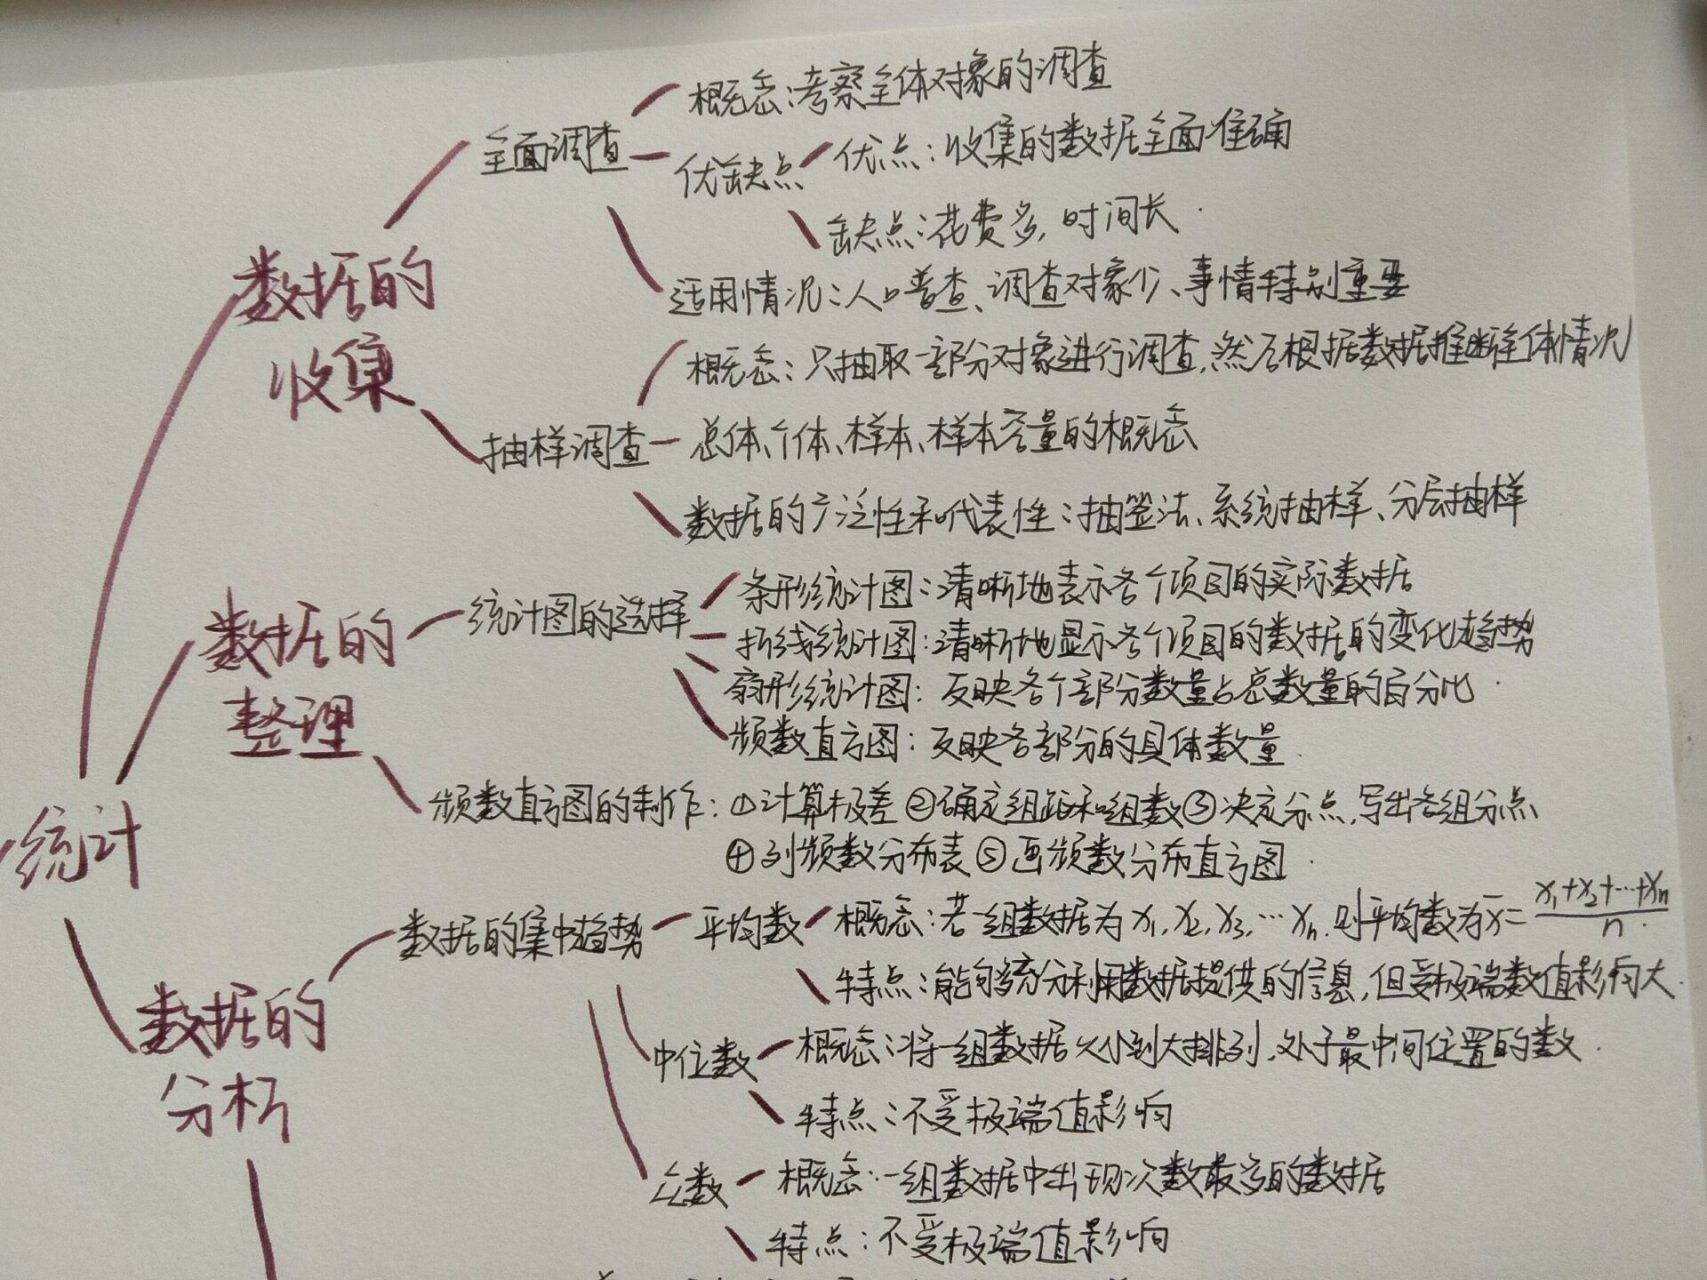 概念：考察全体对象的调查
全面调查
优缺点
优点：收集的数据全面准确
缺点：花费多，时间长
适用情况：人口普查、调查对象少、事情特别重要
数据的
收集
概念：只抽取一部分对象进行调查，然后根据数据推断全体情况
抽样调查
总体、个体、样本、样本容量的概念
数据的广泛性和代表性：抽签法、系统抽样、分层抽样
数据的
整理
统计图的选择
条形统计图：清晰地表示各个项目的实际数据
折线统计图：清晰地显示各个项目的数据的变化趋势
扇形统计图：反映各个部分数量占总数量的百分比
频数直方图：反映各部分的具体数量
频数直方图的制作：①计算极差②确定组距和组数③决定分点，写出各组分点
④列频数分布表⑤画频数分布直方图
统计
数据的集中趋势
平均数
概念：若一组数据为x₁,x₂,x₃,…xₙ,则平均数为x̄=(x₁+x₂+…+xₙ)/n
特点：能够充分利用数据提供的信息，但受极端数值影响大
数据的
分析
中位数
概念：将一组数据从小到大排列，处于最中间位置的数
特点：不受极端值影响
众数
概念：一组数据中出现次数最多的数据
特点：不受极端值影响